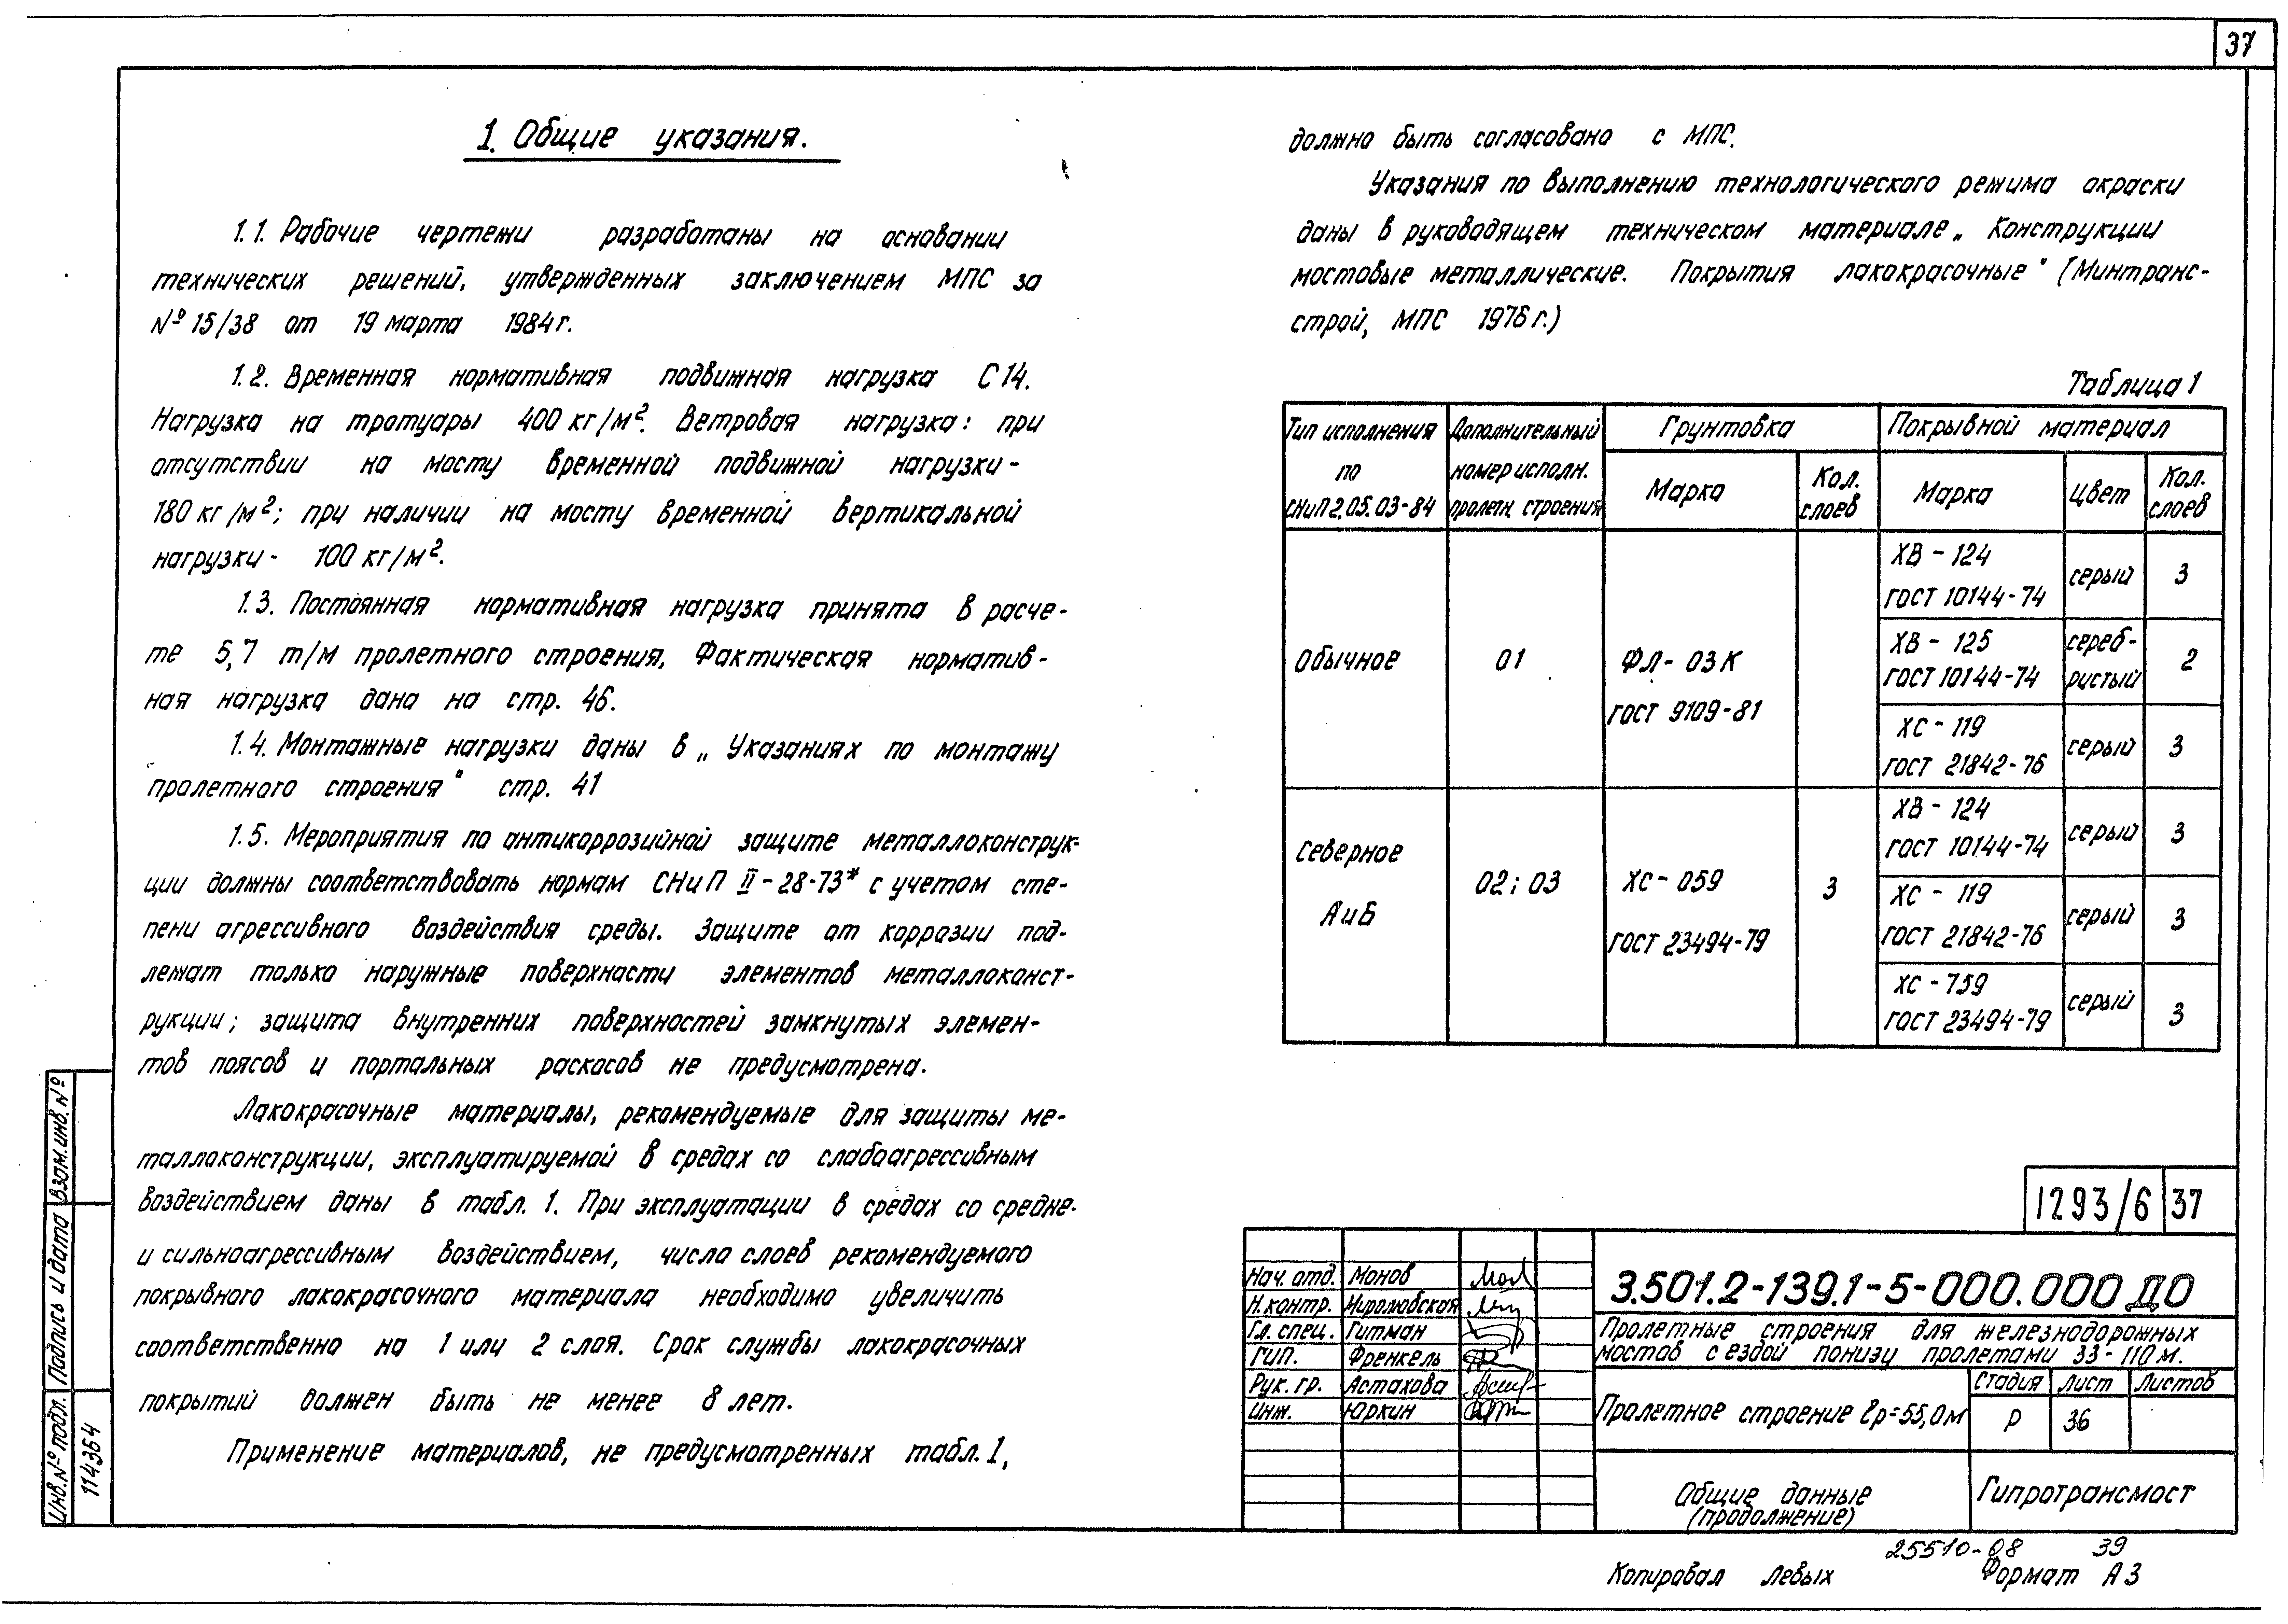 37
1. Общие указания.
1.1. Рабочие чертежи разработаны на основании
технических решений, утвержденных заключением МПС за
№ 15/38 от 19 марта 1984г.
1.2. Временная нормативная подвижная нагрузка С14.
Нагрузка на тротуары 400 кг/м². Ветровая нагрузка: при
отсутствии на мосту временной подвижной нагрузки -
180 кг/м²; при наличии на мосту временной вертикальной
нагрузки - 100 кг/м².
1.3. Постоянная нормативная нагрузка принята в расче-
те 5,7 т/м пролетного строения, Фактическая норматив-
ная нагрузка дана на стр. 46.
1.4. Монтажные нагрузки даны в „Указаниях по монтажу
пролетного строения" стр. 41
1.5. Мероприятия по антикоррозийной защите металлоконструк-
ции должны соответствовать нормам СНиП II-28-73* с учетом сте-
пени агрессивного воздействия среды. Защите от коррозии под-
лежат только наружные поверхности элементов металлоконст-
рукции; защита внутренних поверхностей замкнутых элемен-
тов поясов и портальных раскосов не предусмотрена.
Лакокрасочные материалы, рекомендуемые для защиты ме-
таллоконструкции, эксплуатируемой в средах со слабоагрессивным
воздействием даны в табл. 1. При эксплуатации в средах со средне-
и сильноагрессивным воздействием, число слоев рекомендуемого
покрывного лакокрасочного материала необходимо увеличить
соответственно на 1 или 2 слоя. Срок службы лакокрасочных
покрытий должен быть не менее 8 лет.
Применение материалов, не предусмотренных табл. 1,
должно быть согласовано с МПС.
Указания по выполнению технологического режима окраски
даны в руководящем техническом материале „Конструкции
мостовые металлические. Покрытия лакокрасочные" (Минтранс-
строй, МПС 1976г.)
Таблица 1
Тип исполнения по СНиП 2.05.03-84
Дополнительный номер исполн. пролетн. строения
Грунтовка
Покрывной материал
Марка
Кол. слоев
Марка
Цвет
Кол. слоев
Обычное
01
ФЛ-03К
ГОСТ 9109-81
ХВ-124
ГОСТ 10144-74
серый
3
ХВ-125
ГОСТ 10144-74
сереб-
ристый
2
ХС-119
ГОСТ 21842-76
серый
3
Северное
А и Б
02; 03
ХС-059
ГОСТ 23494-79
3
ХВ-124
ГОСТ 10144-74
серый
3
ХС-119
ГОСТ 21842-76
серый
3
ХС-759
ГОСТ 23494-79
серый
3
1293/6 37
Нач. отд. Монов
Н.контр. Миролюбская
Гл. спец. Гитман
ГИП. Френкель
Рук. гр. Астахова
Инж. Юркин
3.501.2-139.1-5-000.000 ДО
Пролетные строения для железнодорожных
мостов с ездой понизу пролетами 33-110 м.
Пролетное строение lр=55,0м
Стадия Лист Листов
Р 36
Общие данные
(продолжение)
Гипротрансмост
25510-08 39
Копировал Левых Формат А3
Взам.инв.№
Подпись и дата
Инв.№ подл.
114364